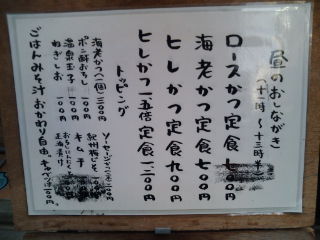 昼のおしながき
(十一時〜十三時半)
ロースかつ定食 七〇〇円
海老かつ定食 七〇〇円
ヒレかつ定食 九〇〇円
ヒレかつ一.五倍定食 一二〇〇円
トッピング
海老かつ(一個) 二〇〇円
ポン酢おろし 一〇〇円
温泉玉子 一〇〇円
ねぎしお 一〇〇円
ソーセージ
紀州梅じそ 一〇〇円
キムチ
ごはんみそ汁おかわり自由